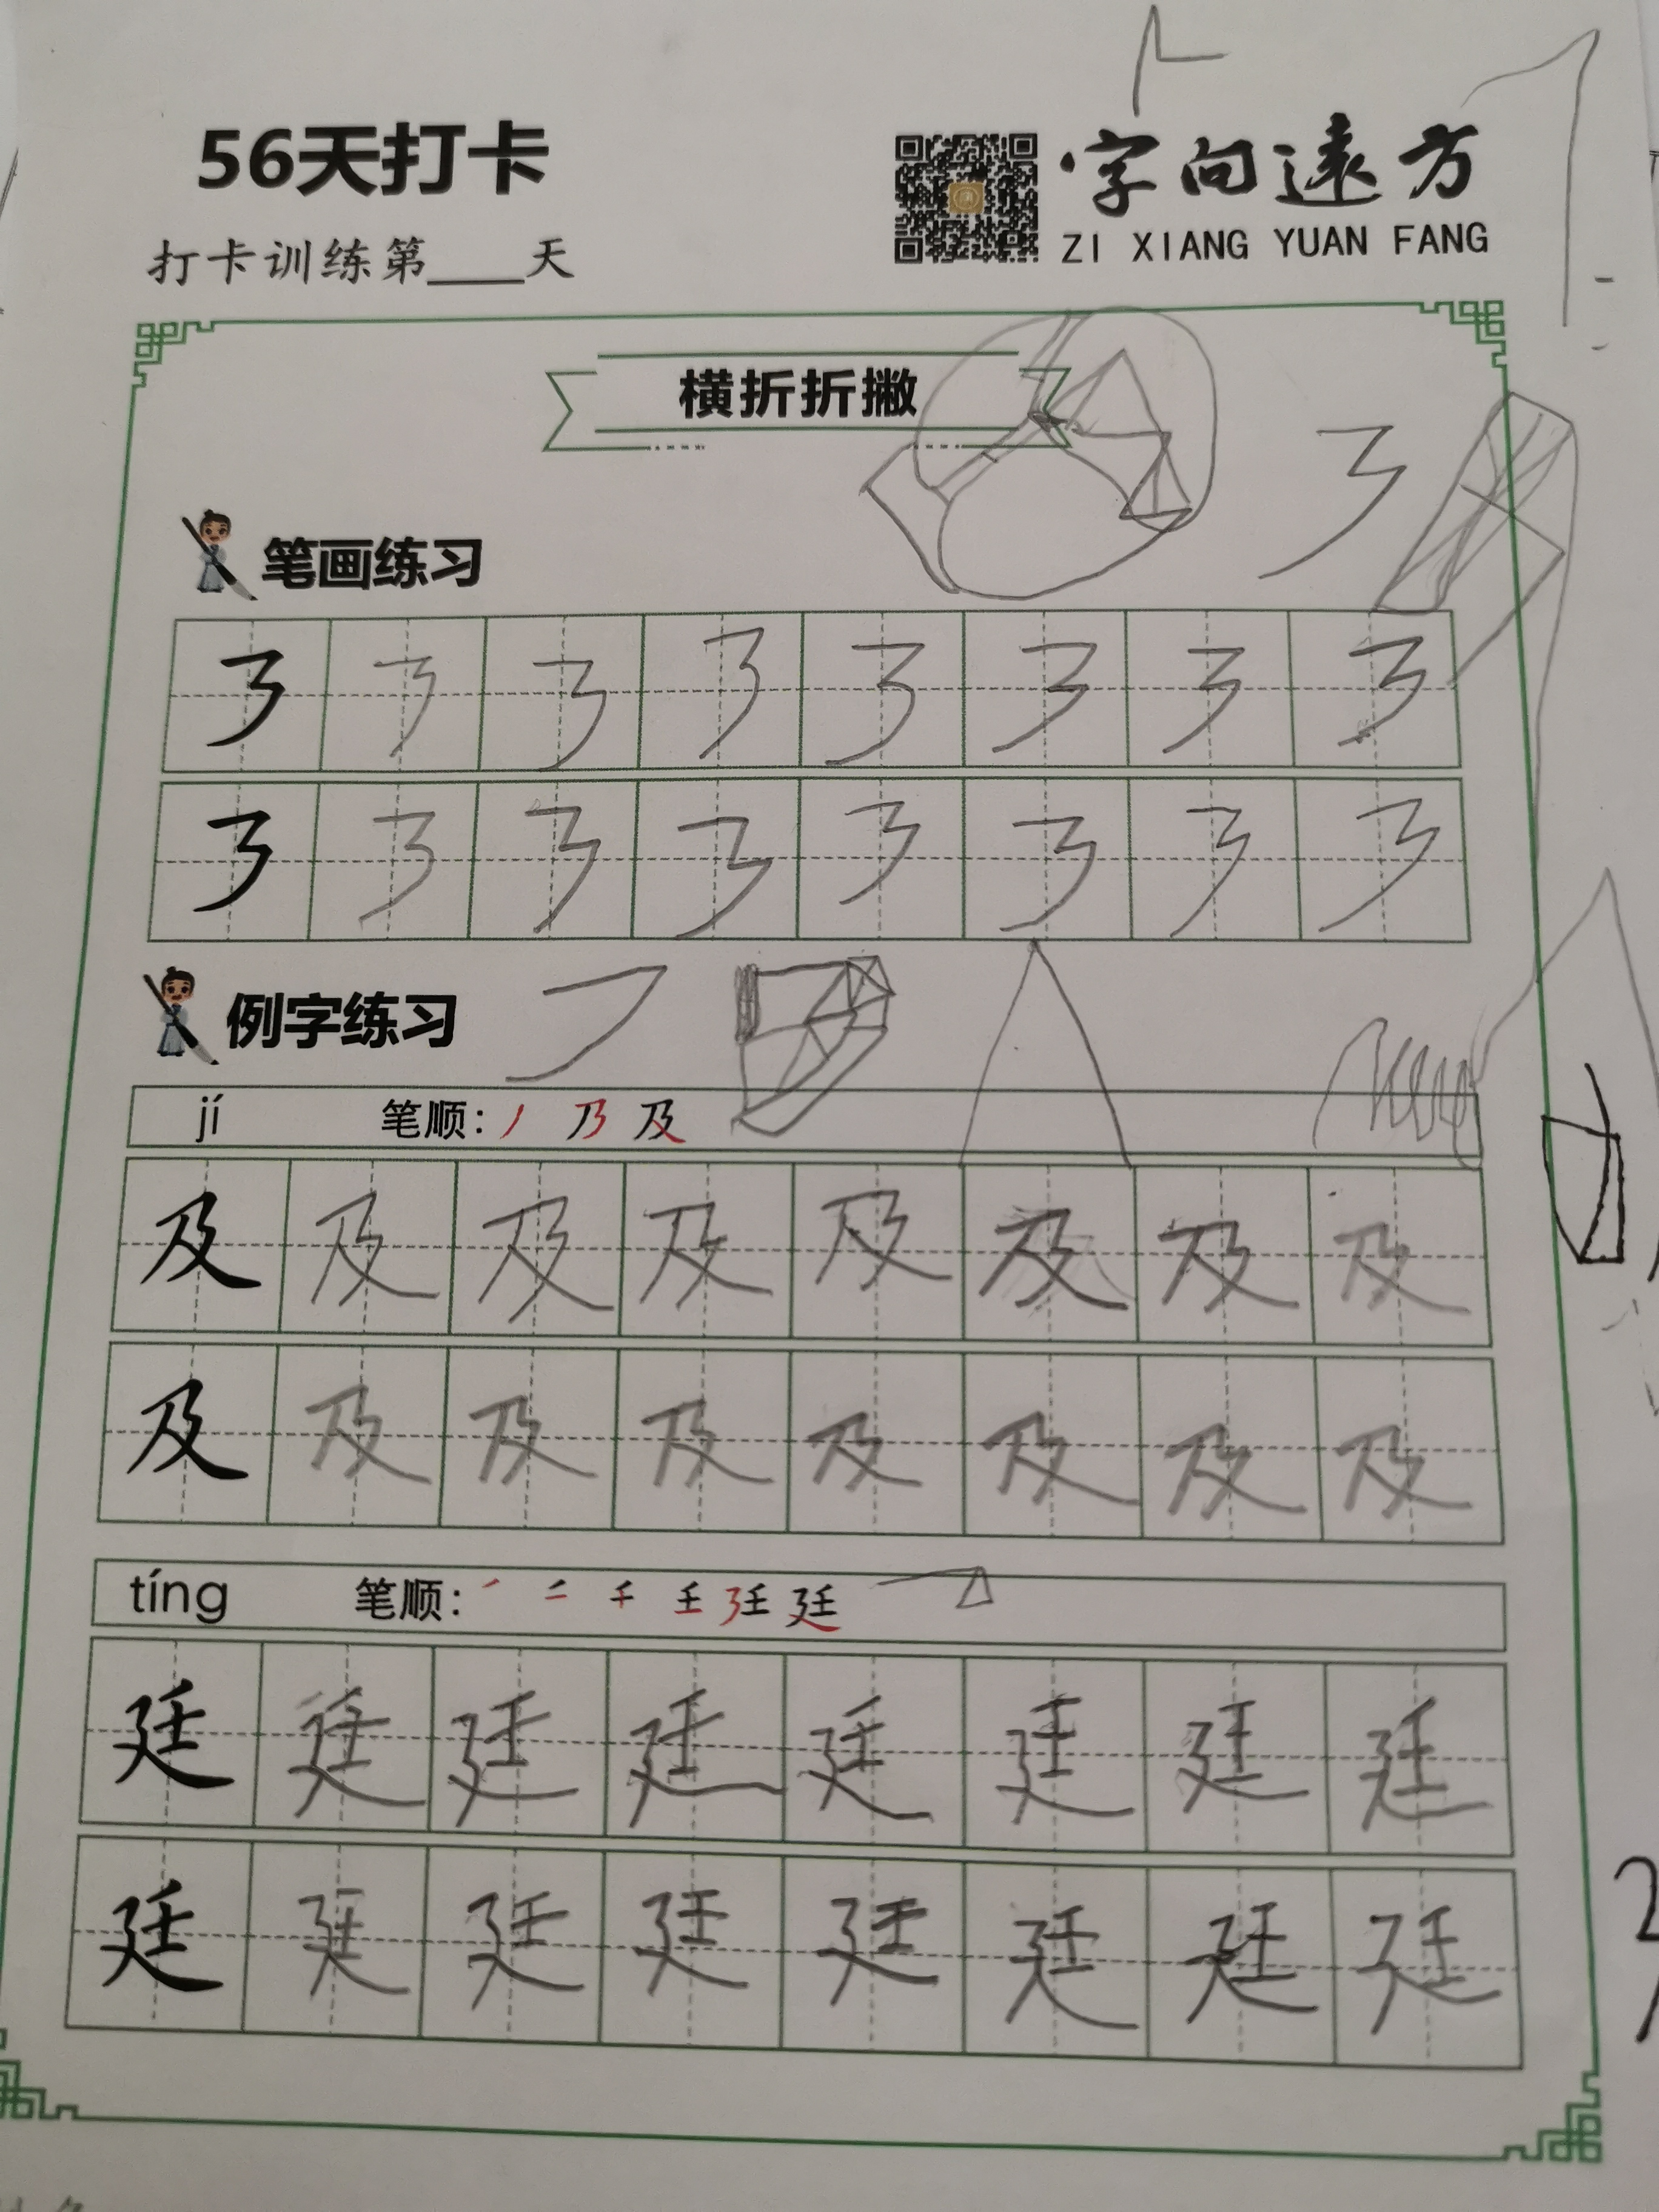 56天打卡
字向遠方
打卡训练第____天
ZI XIANG YUAN FANG
横折折撇
笔画练习
例字练习
jí 笔顺: 丿 乃 及
及 及 及 及 及 及 及 及
及 及 及 及 及 及 及 及
tíng 笔顺: ㇒ 二 千 壬 廷 廷
廷 廷 廷 廷 廷 廷 廷 廷
廷 廷 廷 廷 廷 廷 廷 廷